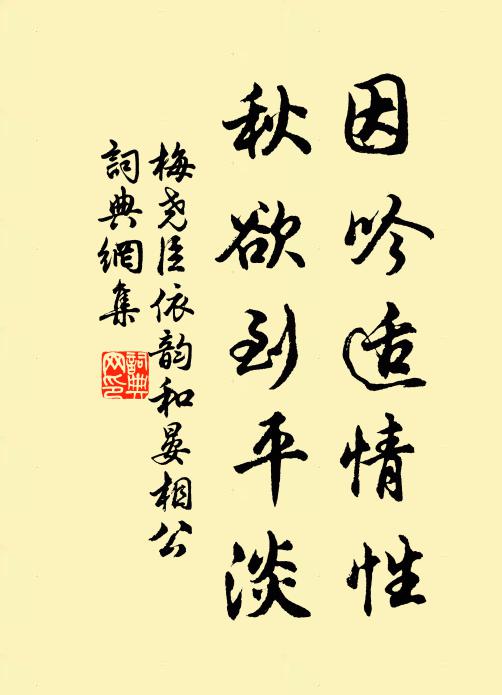 因吟适情性
秋欲到平淡
梅尧臣依韵和晏相公
詞典網集
詞典
网印